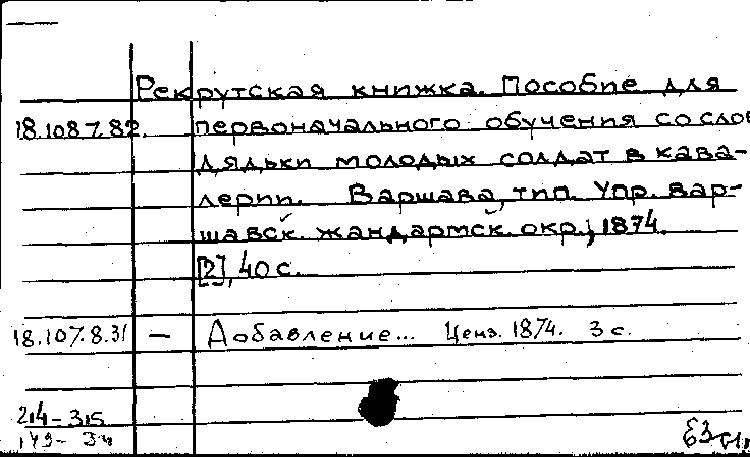 Рекрутская книжка. Пособие для
18.108 7.82. первоначального обучения со слов
дядьки молодых солдат в кава-
лерии. Варшава, тип. Упр. вар-
шавск. жандармск. окр., 1874.
[2], 40 с.
18.107.8.31 — Добавление... Ценз. 1874. 3 с.
214-315